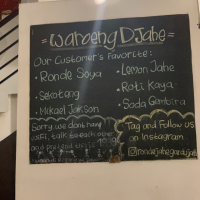 = Waroeng DJahe =
Our Customer's Favorite:
• Ronde Soya
• Lemon Jahe
• Sekoteng
• Roti Kaya
• Mikael Jakson
• Soda Gembira
Sorry we dont have
wifi, talk to each other
and pretend
Tag and Follow us
on Instagram